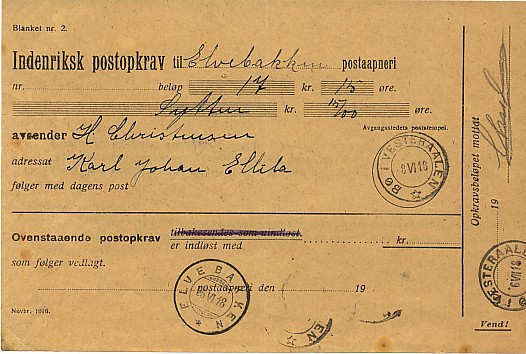 Blanket nr. 2.
Indenriksk postopkrav til Elvebakken postaapneri
nr. beløp 17 kr. 15 øre.
Sytten kr. 15/00 øre.
avsender H Christensen
Avgangsstedets poststempel.
adressat Karl Johan
følger med dagens post
BØ I VESTERAALEN
8 VI 18
Ovenstaaende postopkrav tilbakesendes som uindløst.
er indløst med kr.
som følger vedlagt.
postaapneri den 19
ELVEBAKKEN
VI 18
EN
Novbr. 1916.
Opkravsbeløpet mottat
19
BØ I VESTERAALEN
6 VII 18
Vend!